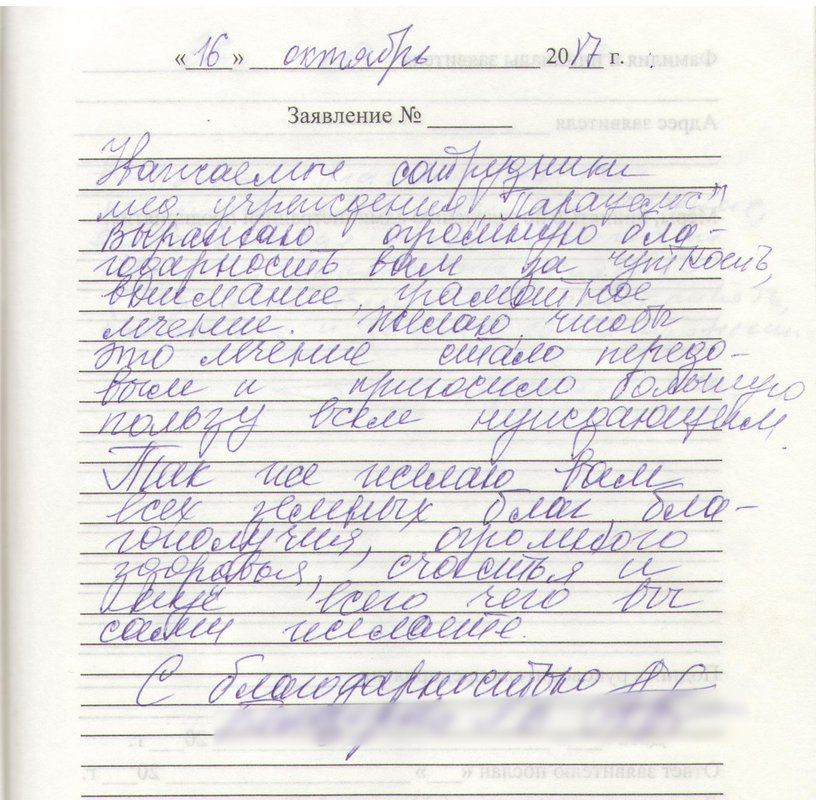 «16» октябрь 2017 г.
Заявление №
Уважаемые сотрудники
мед. учреждения "Парацельс"
Выражаю огромную бла-
годарность вам за чуткость,
внимание, грамотное
лечение. Желаю чтобы
это лечение стало передо-
вым и приносило большую
пользу всем нуждающим
Так же желаю вам
всех земных благ бла-
гополучия, огромного
здоровья, счастья и
ещё всего чего вы
сами желаете.
С благодарностью